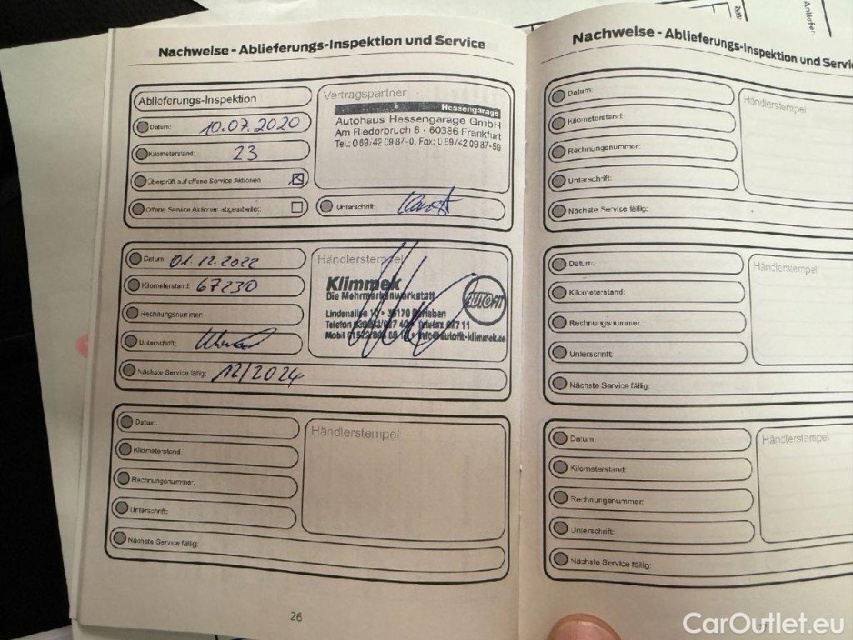 Nachweise - Ablieferungs-Inspektion und Service
Ablieferungs-Inspektion
Datum: 10.07.2020
Kilometerstand: 23
Überprüft auf offene Service Aktionen
Offene Service Aktionen abgearbeitet:
Vertragspartner
Hessengarage
Autohaus Hessengarage GmbH
Am Riederbruch 6 · 60386 Frankfurt
Tel.: 069/42 09 87-0, Fax: 069/42 09 87-59
Unterschrift:
Datum: 01.12.2022
Kilometerstand: 67230
Rechnungsnummer:
Unterschrift:
Nächste Service fällig: 12/2024
Händlerstempel
Klimmek
Die Mehrmarkenwerkstatt
AUTOFIT
Lindenallee
Telefon
Mobil
Datum:
Kilometerstand:
Rechnungsnummer:
Unterschrift:
Nächste Service fällig:
Händlerstempel
26
Nachweise - Ablieferungs-Inspektion und Servi
Datum:
Kilometerstand:
Rechnungsnummer:
Unterschrift:
Nächste Service fällig:
Händlerstempel
Datum:
Kilometerstand:
Rechnungsnummer:
Unterschrift:
Nächste Service fällig:
Händlerstempel
Datum:
Kilometerstand:
Rechnungsnummer:
Unterschrift:
Nächste Service fällig:
Händlerstempel
CarOutlet.eu